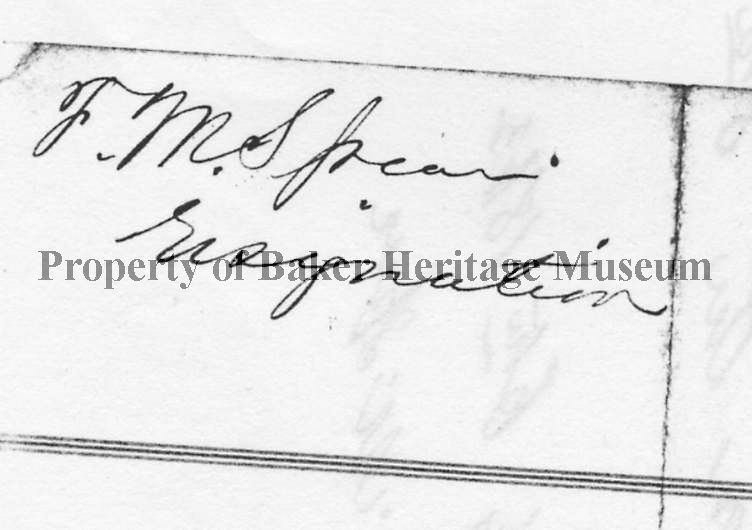 F. M. Spear
Resignation
Property of Baker Heritage Museum